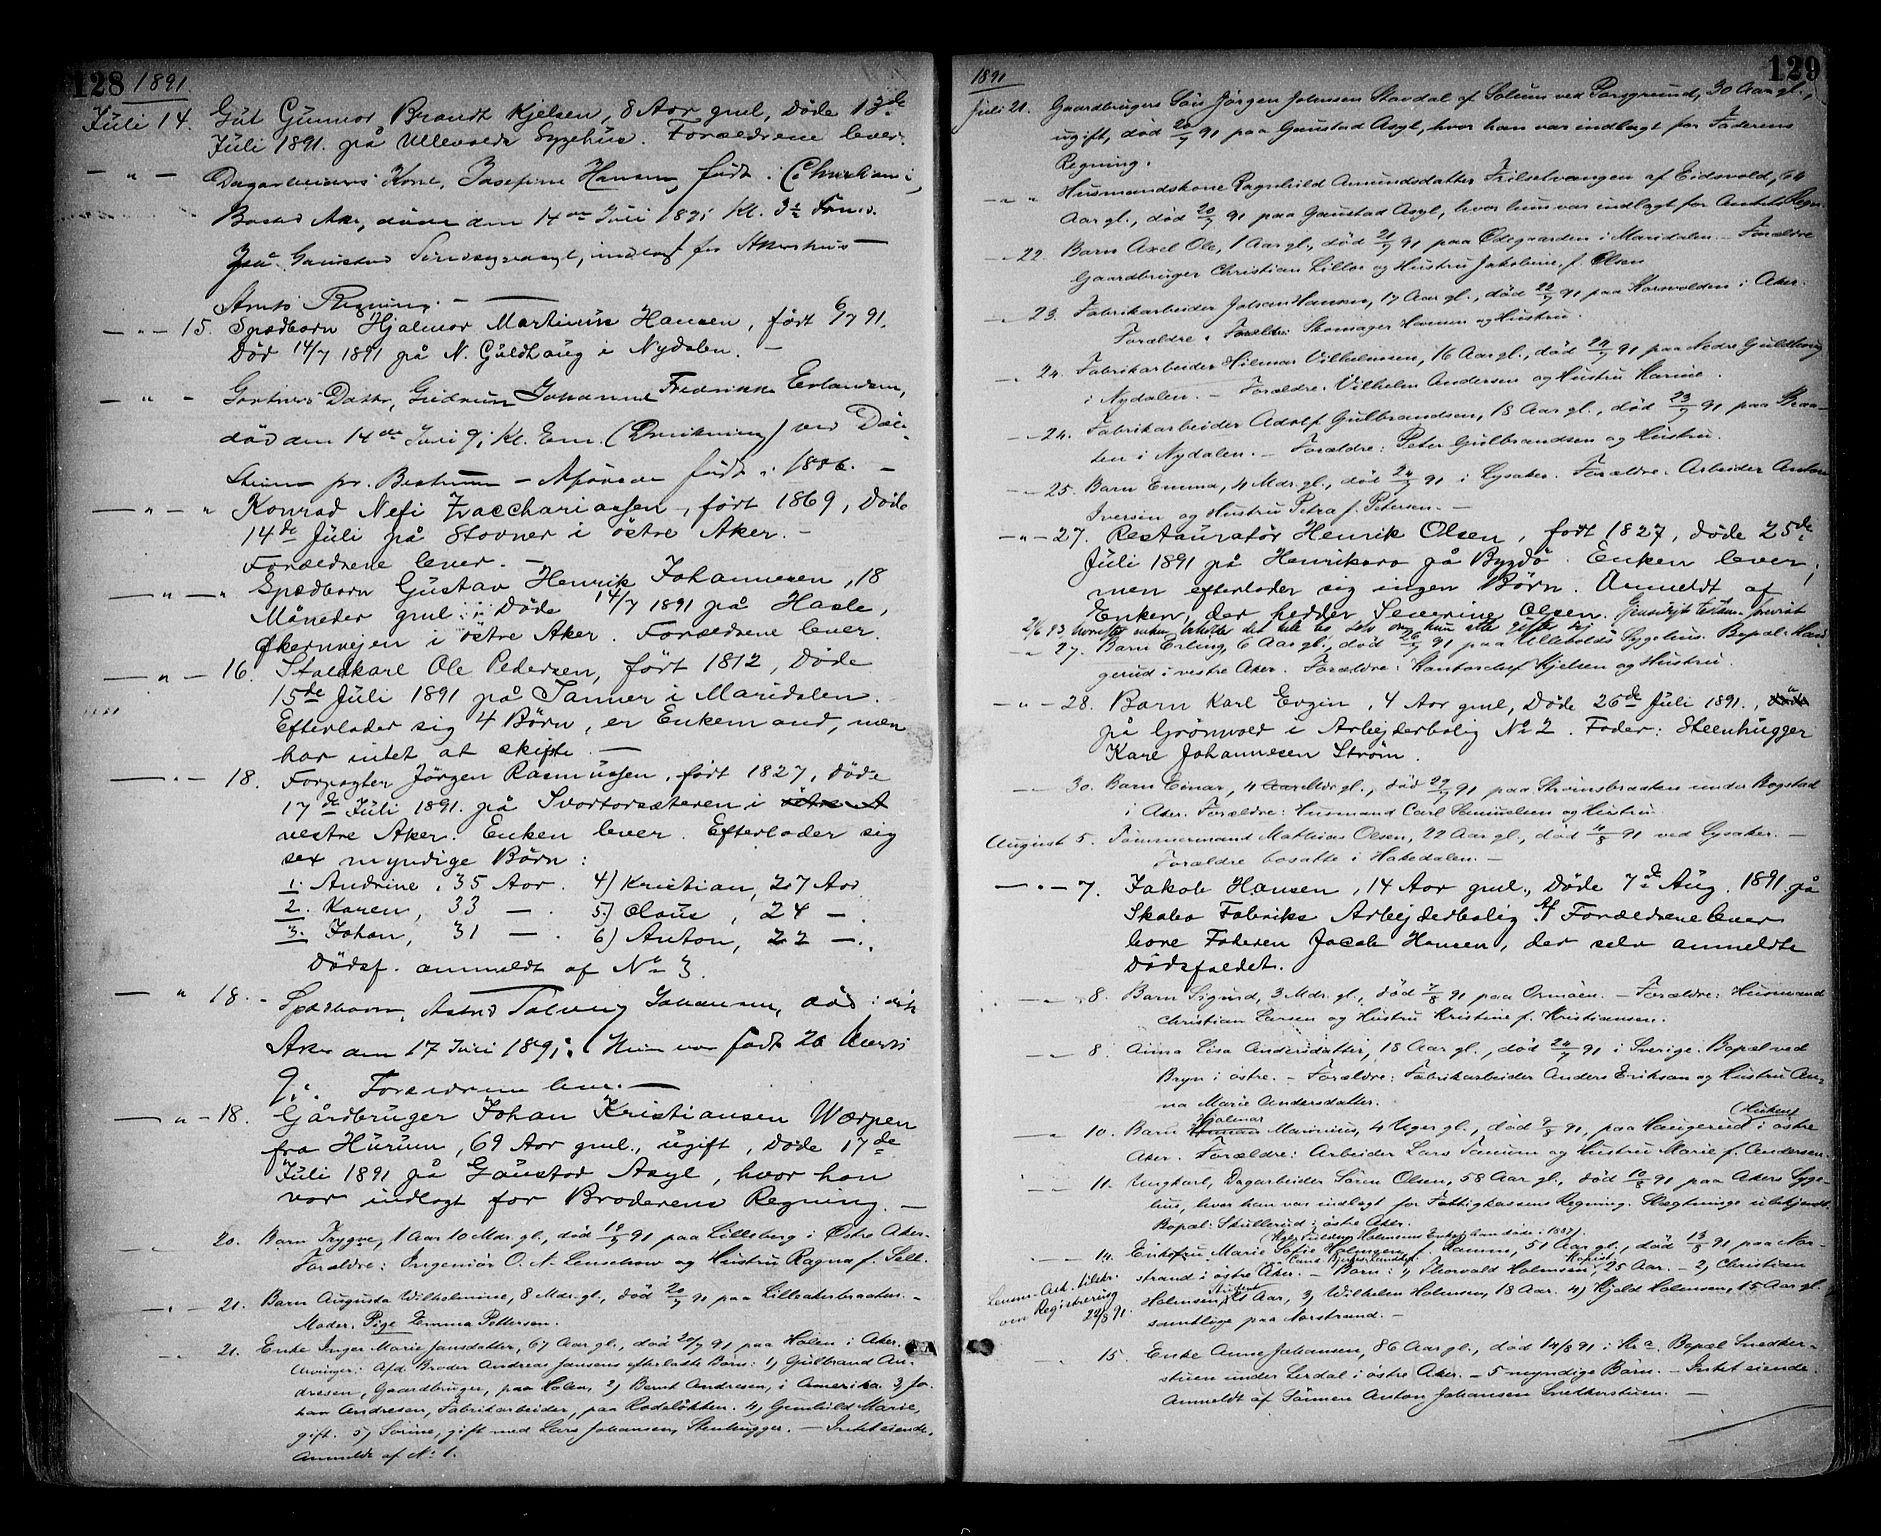 128 1891.
Juli 14. Gut Gunnar Brandt Kjelsen, 8 Aar gml, døde 13de
Juli 1891. på Ullevolds Sygehus. Forældrene lever.
— " — Dagarbeiders Kone, Josefine Hansen, født i Christiania,
Bosted Aker, døde den 14de Juli 1891 Kl. 3½ Form.
paa Gaustad Sindssygeasyl, indlagt for Akershus
Amts Regning. —
— " — 15. Spædbarn Hjalmar Martinius Hansen, født 6/7 91.
Død 14/7 1891 på N. Guldhaug i Nydalen. —
— " — Gartners Datter, Gudrun Johanne Fredrikke Erlandsen,
død den 14de Juli 91 Kl. Em. (Drukning) ved
pr. Bestum — født i 1886. —
— " — " Konrad Nefi Zacchariassen, født 1869, døde
14de Juli på Stovner i østre Aker. —
Forældrene lever. —
— " — " Spædbarn Gustav Henrik Johannesen, 18
Måneder gml. Døde 14/7 1891 på Hasle,
Økernvejen i østre Aker. Forældrene lever.
— " — 16. Staldkarl Ole Pedersen, født 1812, døde
15de Juli 1891 på Tanner i Maridalen.
Efterlader sig 4 Børn, er Enkemand, men
har intet at skifte. —
— " — 18. Forpagter Jörgen Rasmussen, født 1827, døde
17de Juli 1891. på Svartorsæteren i østre A
vestre Aker. Enken lever. Efterlader sig
sex myndige Børn:
1. Andrine, 35 Aar. 4) Kristian, 27 Aar
2. Karen, 33 — . 5) Olaus, 24 — .
3. Johan, 31 — . 6) Anton, 22 — .
Dødsf. anmeldt af No 3.
— " 18. - Spædbarn, Astrid Solveig Johansen, død i østre
Aker den 17 Juli 1891. (Hun var født 26 Marts
91. Forældrene lever. —
— " — 18. Gårdbruger Johan Kristiansen Wærpen
fra Hurum, 69 Aar gml., ugift, døde 17de
Juli 1891 på Gaustad Asyl, hvor han
var indlagt for Broderens Regning. —
— " — 20. Barn Trygve, 1 Aar 10 Mdr. gl., død 19/7 91 paa Lilleberg i Østre Aker.
Forældre: Ingeniør O. N. Lenschow og Hustru Ragna f. Sell.
— " — 21. Barn Augusta Wilhelmine, 8 Mdr. gl., død 20/7 91 paa Lilleakerbraaten. -
Moder. Pige Emma Pettersen.
— " — 21. Enke Inger Marie Jansdatter, 67 Aar gl., død 20/7 91 paa Holen i Aker.
Arvinger: Afd. Broder Andreas Jansens efterladte Børn: 1) Gulbrand An-
dresen, Gaardbruger, paa Holen, 2) Bernt Andresen, i Amerika. 3) Jo-
han Andresen, Fabrikarbeider, paa Rodeløkken. 4) Gunhild Marie,
gift. 5) Sorine, gift med Lars Johansen, Stenhugger. — Intet eiende.
Anmeldt af No 1.
129
1891
Juli 21. Gaardbrugers Søn Jörgen Johnsen Stavdal af Solum ved Porsgrund, 30 Aar gl.,
ugift, død 20/7 91 paa Gaustad Asyl, hvor han var indlagt for Faderens
Regning.
— " " Husmandskone Ragnhild Amundsdatter Trilsetvangen af Eidsvold, 64
Aar gl., død 20/7 91 paa Gaustad Asyl, hvor hun var indlagt for Amtets Regn.
— " 22. Barn Axel Ole, 1 Aar gl., død 21/7 91 paa Ødegaarden i Maridalen. — Forældre
Gaardbruger Christian Lilloe og Hustru Jakobine f. Olsen
— " 23. Fabrikarbeider Johan Hansen, 17 Aar gl., død 22/7 91 paa Korsvolden i Aker.
Forældre: Forældre: Skomager Hansen og Hustru.
— " 24. Fabrikarbeider Hilmar Vilhelmsen, 16 Aar gl., død 24/7 91 paa Nedre Guldhaug
i Nydalen. — Forældre. Vilhelm Andersen og Hustru Karine.
— " 24. Fabrikarbeider Adolf Gulbrandsen, 18 Aar gl., død 23/7 91 paa Braa-
ten i Nydalen. — Forældre: Peter Gulbrandsen og Hustru.
— " 25. Barn Emma, 4 Mdr. gl., død 24/7 91 i Lysaker. Forældre. Arbeider Anton
Iversen og Hustru Petra f. Petersen. —
— " — 27. Restauratør Henrik Olsen, født 1827, døde 25de
Juli 1891 på Henriksro på Bygdø. Enken lever,
men efterlader sig ingen Børn. Anmeldt af
Enken, der hedder Severine Olsen.
— " 27. Barn Erling, 6 Aar gl., død 26/7 91 paa Ullevolds Sygehus. Bopæl: Hau-
gerud i vestre Aker. Forældre: Kontorchef Kjelsen og Hustru.
— " — 28. Barn Karl Evgen, 4 Aar gml, døde 26de Juli 1891.,
på Grønvold i Arbejderbolig No 2. Fader: Steenhugger
Karl Johannesen Strøm.
— " 30. Barn Einar, 4 Aar Mdr gl., død 29/7 91 paa Strömsbraaten under Bogstad
i Aker. Forældre: Husmand Carl Samuelsen og Hustru.
August 5. Tømmermand Mathias Olsen, 22 Aar gl., død 4/8 91 ved Lysaker. —
Forældre bosatte i Hakedalen. —
— " — 7. Jakob Hansen, 14 Aar gml., døde 7de Aug. 1891 på
Skabo Fabriks Arbejderbolig. Af Forældrene lever
bare Faderen Jacob Hansen, der selv anmeldte
Dødsfaldet.
— " 8. Barn Sigurd, 3 Mdr. gl., død 7/8 91 paa Ormøen. — Forældre: Husmand
Christian Larsen og Hustru Kristine f. Kristiansen.
— " 8. Anna Lisa Andersdatter, 18 Aar gl., død 24/7 91 i Sverige. Bopæl ved
Bryn i østre. — Forældre: Fabrikarbeider Anders Erikson og Hustru An-
na Marie Andersdatter.
— " 10. Barn Hjalmar Marinius, 4 Uger gl., død 9/8 91, paa Haugerud i østre
Aker. Forældre: Arbeider Lars Tanum og Hustru Marie f. Andersen.
— " 11. Ungkarl, Dagarbeider Søren Olsen, 58 Aar gl., død 10/8 91 paa Akers Syge-
hus, hvor han var indlagt for Fattigkassens Regning. Slægtninge ubekjendt.
Bopæl: Skullerud i østre Aker.
— 14. Enkefru Marie Sofie Holmsen f. Ramm, 51 Aar gl., død 13/8 91 paa Nor-
strand i østre Aker. — Børn: 1) Thorvald Holmsen, 25 Aar. — 2) Christian
Holmsen, 21 Aar, 3) Wilhelm Holmsen, 18 Aar. 4) Hjald Holmsen, 15 Aar gl.
samtlige paa Norstrand. —
om Registrering
22/8 91.
— 15. Enke Anne Johansen, 86 Aar gl., død 14/8 91 i Kr.a. Bopæl Snedker-
stuen under Lerdal i østre Aker. — 5 myndige Børn. — Intet eiende.
Anmeldt af Sønnen Anton Johansen Snedkerstuen. —